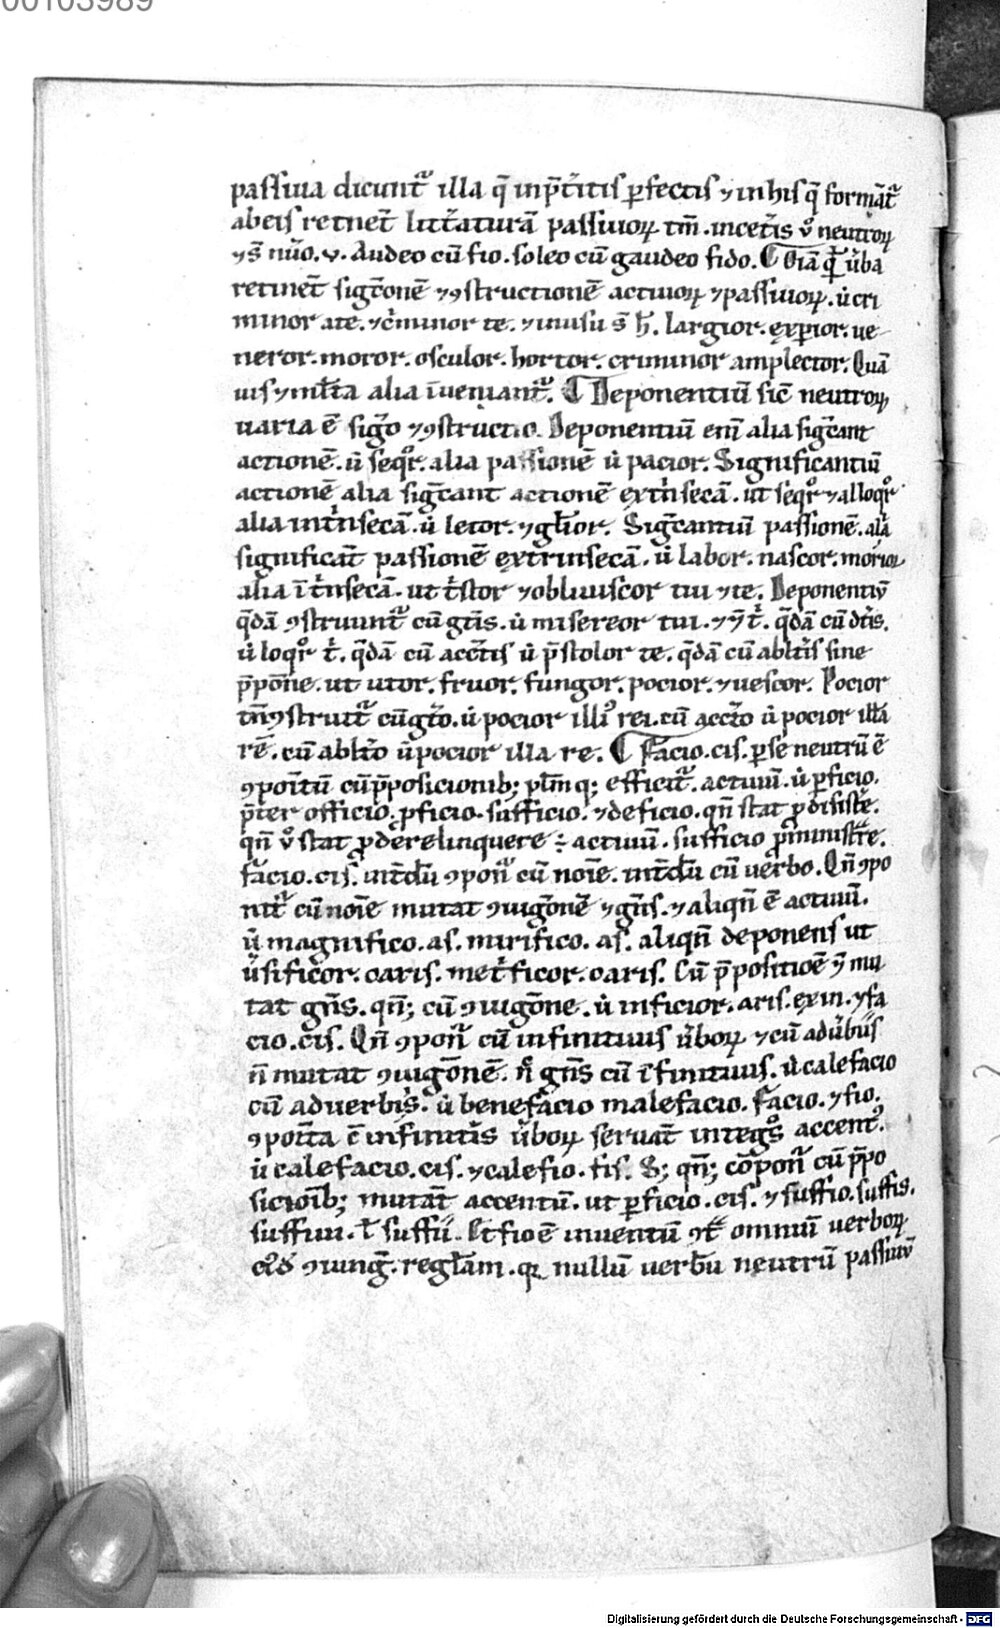 00103989
passiua dicunt᷑ illa q̄ in p̄t̄itis ꝑfectis ⁊ in his q̄ formāt᷑
abeis retinēt litt̄aturā passiuoꝝ tm̄. incet̄is v̊ neutroꝝ
⁊ s̄ nūo. v. Audeo cū fio. soleo cū gaudeo fido. ỽba
retinēt sigc̄onē ⁊ ꝯstructionē actiuoꝝ ⁊ passiuoꝝ. ỽ cri
minor a te. ⁊ c̓minor te. ⁊ inusu s̄ h̄. largior. exꝑior. ue
neror. moror. osculor. hortor. criminor amplector. Quā
uis ⁊ ml̄ta alia īueniant᷑. Deponentiū sic̄ neutroꝝ
uaria ē sigc̄o ⁊ ꝯstructio. Deponentiū eni̅ alia sigc̄ant
actionē. ỽ seqͦr. alia passionē ỽ pacior. Significantiū
actionē alia sigc̄ant actionē ext̓nsecā. ut seqͦr ⁊ alloqͦr
alia int̓nsecā. ỽ letor. ⁊ gl̄ior. Sigc̄antiū passionē. alia
significāt passionē extrinsecā. ỽ labor. nascor. morior
alia īt̓nsecā. ut t̓stor ⁊ obliuiscor tui ⁊ te. Deponentiū
q̄dā ꝯstruunt᷑ cū gt̄is. ỽ misereor tui. ⁊ q̄dā cū dt̄is.
ỽ loqͦr t̓. q̄dā cū acc̄tis ỽ p̄stolor te. q̄dā cū ablt̄is sine
p̄pōne. ut utor. fruor. fungor. pocior. ⁊ uescor. Pocior
tn̄ ꝯstruit᷑ cū gt̄o. ỽ pocior illiꝰ rei. cū acc̄to ỽ pocior illā
rē. cū ablt̄o ỽ pocior illa re. Facio. cis. ꝑ se neutrū ē
ꝯpoītū cū p̄posicionib; plm̄q; efficit᷑. actiuū. ỽ ꝑficio.
p̄ter officio. ꝓficio. sufficio. ⁊ deficio. qn̄ stat ꝓ desistē.
qn̄ v̊ stat ꝓ derelinquere ÷ actiuū. sufficio ꝓ ministrē.
facio. cis. int̄dū ꝯponit᷑ cū noīe. int̄dū cū uerbo. Qn̄ ꝯpo
nit᷑ cū noīe mutat ꝯiugōnē ⁊ gn̄s. ⁊ aliqn̄ ē actiuū.
ỽ magnifico. as. mirifico. as. aliqn̄ deponens ut
ỽsificor. caris. met̓ficor. caris. Cū p̄positioē n̄ mu
tat gn̄s. qn̄; cū ꝯiugōne. ỽ inficior. aris. ex in. ⁊ fa
cio. cis. Qn̄ ꝯponit᷑ cū infinitiuis ỽboꝝ ⁊ cū adỽbiis
n̄ mutat ꝯiugōnē. n̄ gn̄s cū īfinitiuis. ỽ calefacio
cū aduerbiis. ỽ benefacio malefacio. facio. ⁊ fio.
ꝯpoīta c̄ infinitis ỽboꝝ seruāt integͦs accentꝰ.
ỽ calefacio. cis. ⁊ calefio. fis. S; qn̄; cōponit᷑ cū p̄po
sicioīb; mutāt accentū. ut ꝑficio. cis. ⁊ suffio. suffis.
suffiui. ł suffii. Et fio ē inuentū ꝯt᷑ omniū verboꝝ
ꝯiunḡ. regl̄am. qꝛ nullū uerbū neutrū passiuū
Digitalisierung gefördert durch die Deutsche Forschungsgemeinschaft - DFG